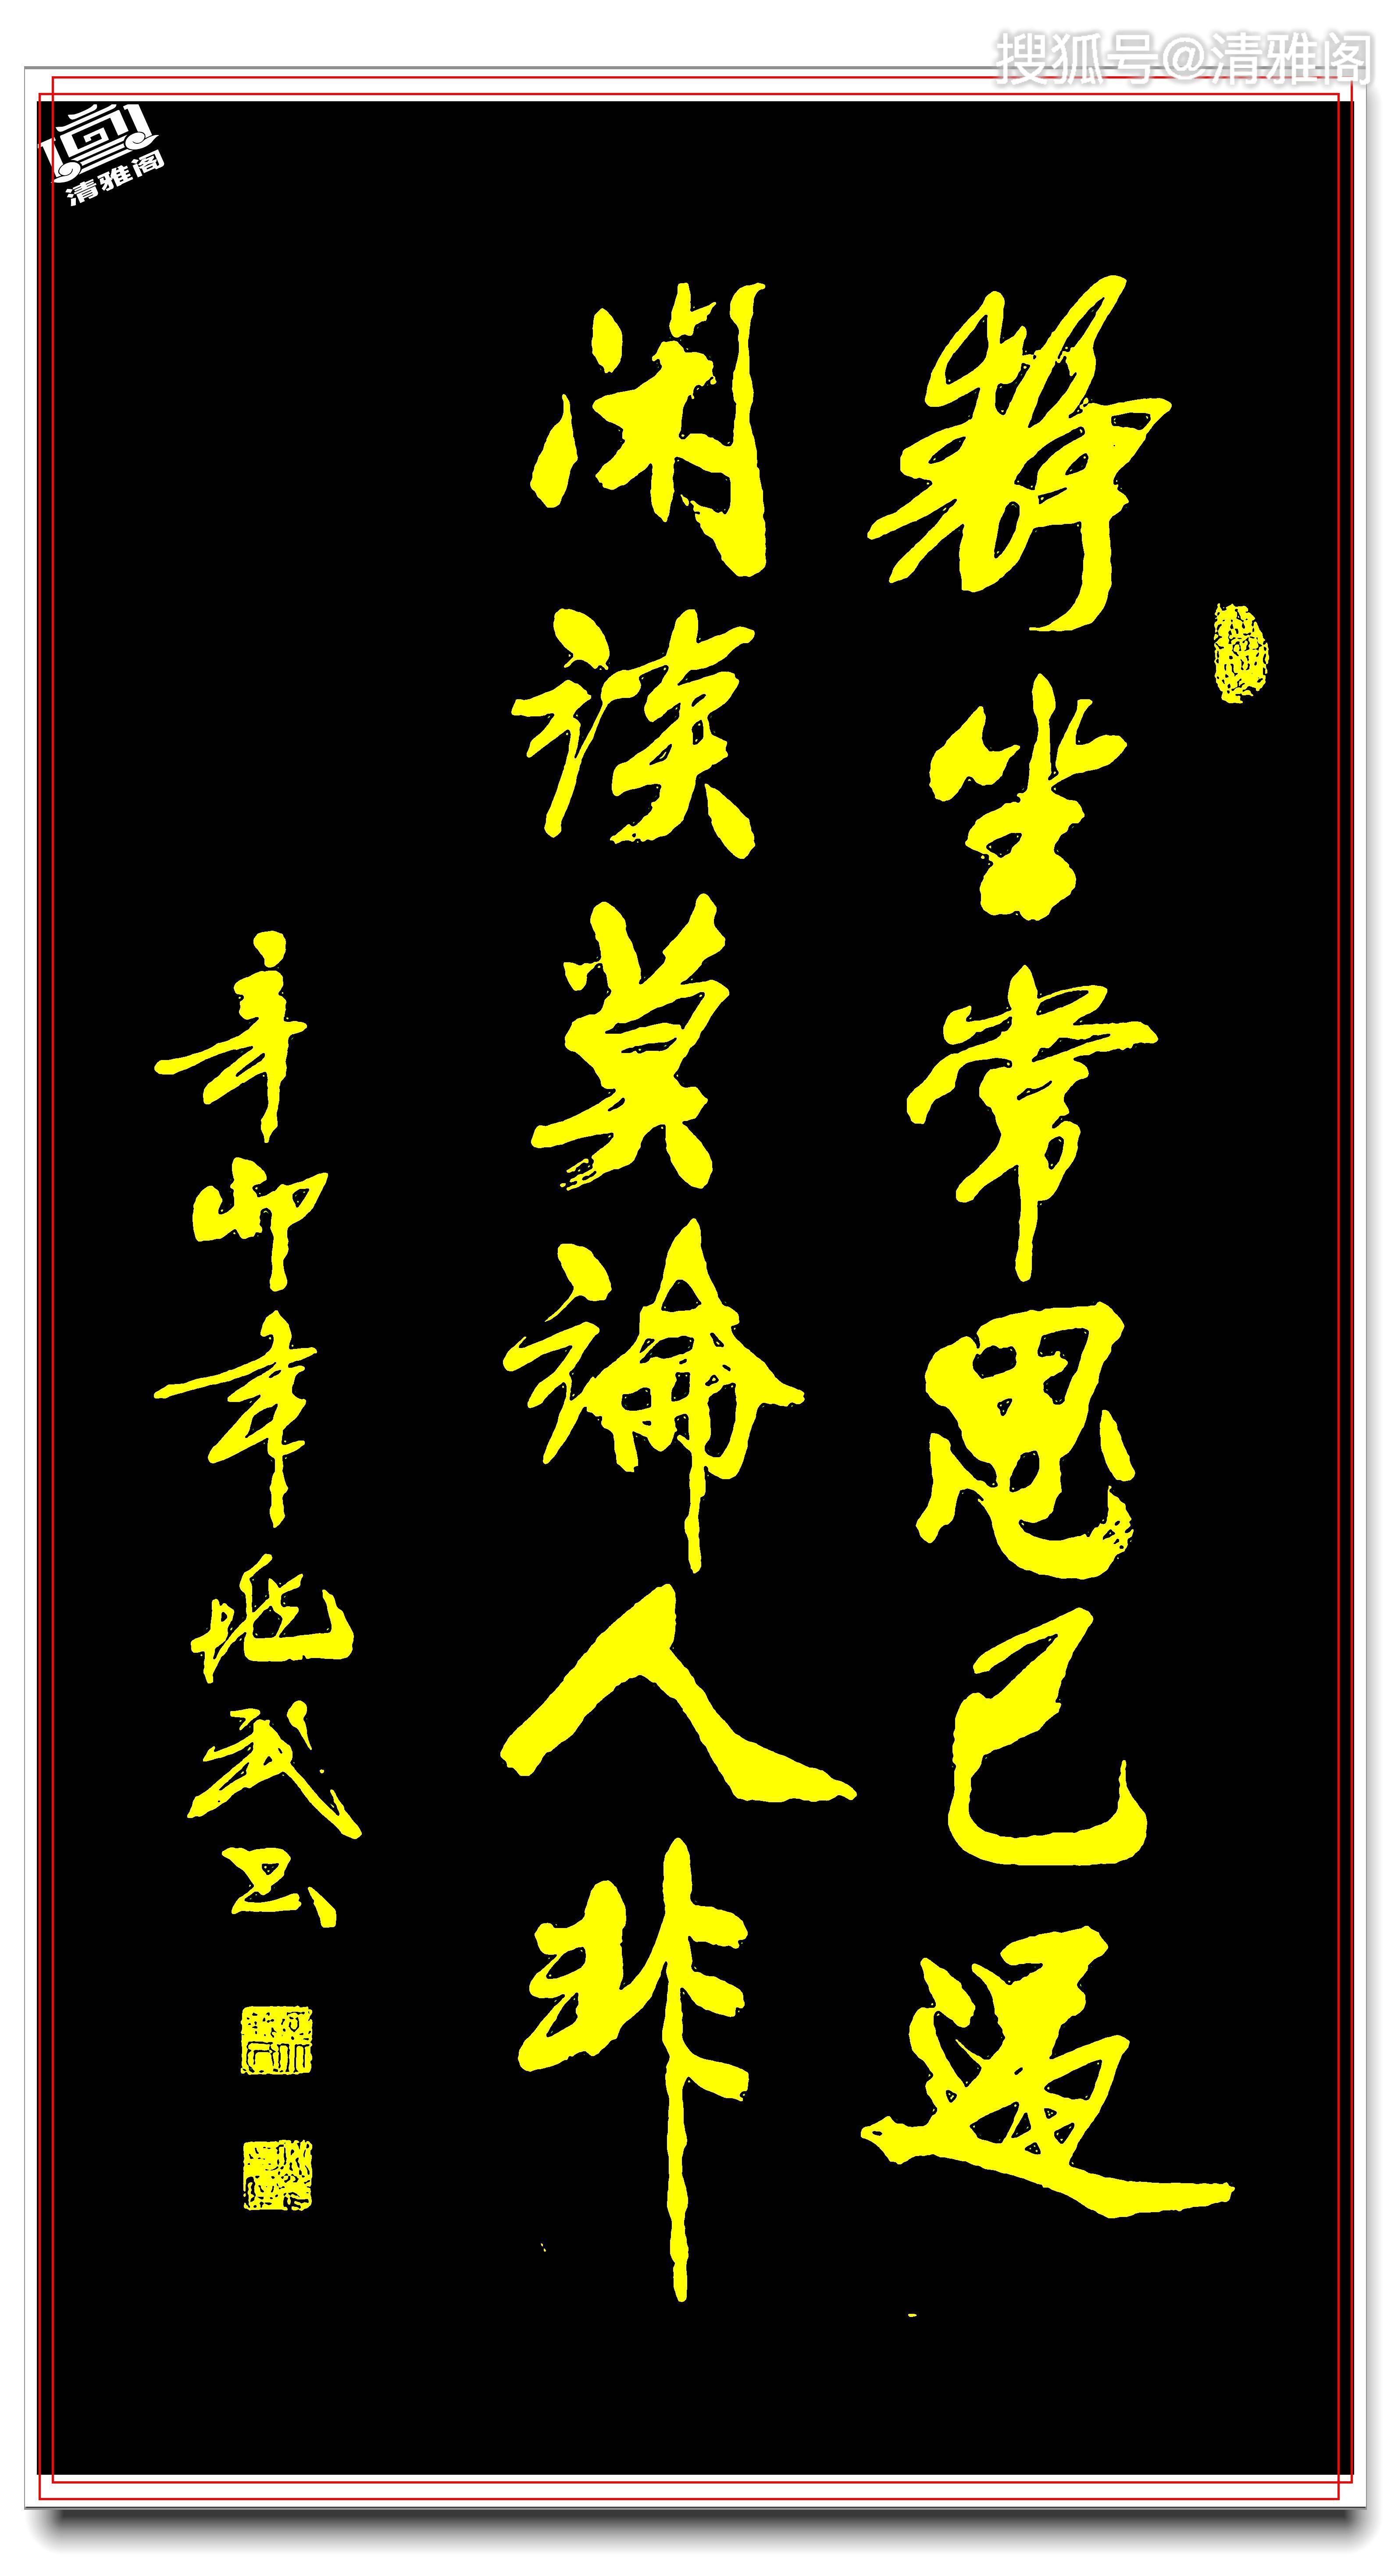 搜狐号@清雅阁
清雅阁
靜坐常思己過
閑談莫論人非
辛卯年武书